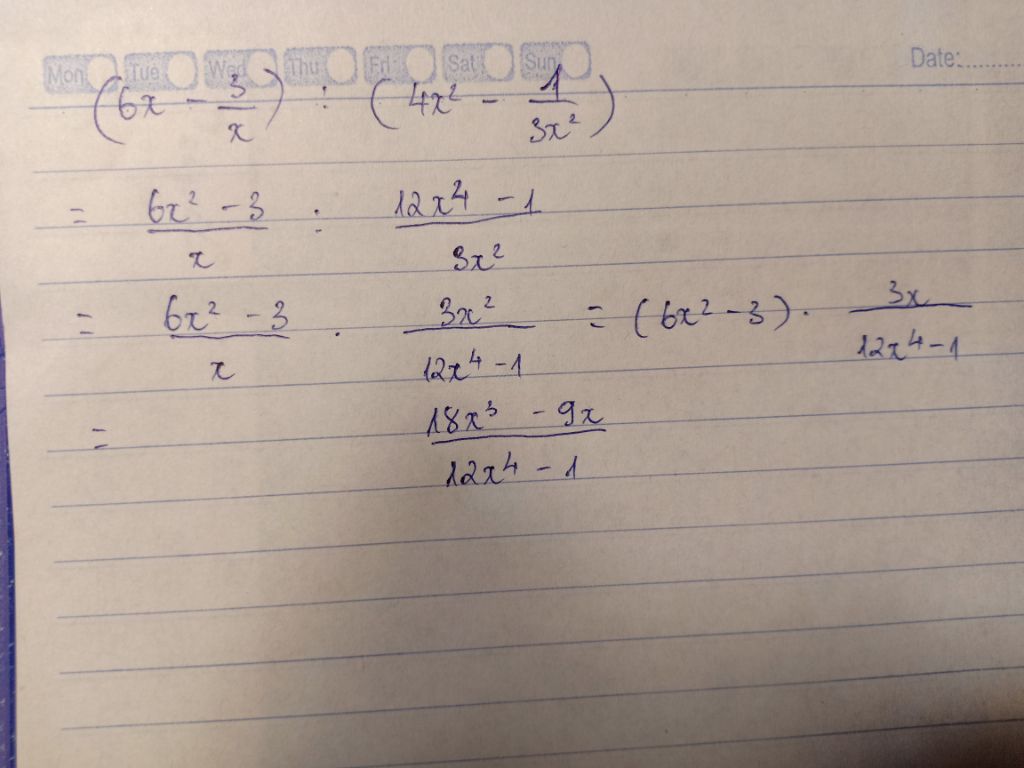 Mon Tue Wed Thu Fri Sat Sun Date:..........
(6x - 3/x) : (4x² - 1/3x²)
= 6x² - 3/x : 12x⁴ - 1/3x²
= 6x² - 3/x . 3x²/12x⁴ - 1 = (6x² - 3) . 3x/12x⁴ - 1
= 18x³ - 9x/12x⁴ - 1